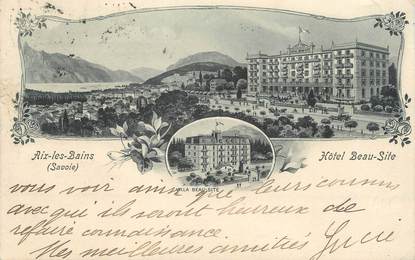 Aix-les-Bains
(Savoie)
Hôtel Beau-Site
VILLA BEAU-SITE
vous voir ainsi que leurs cousins
avec qui ils seront heureux de
refaire connaissance
Mes meilleures amitiés Lucie